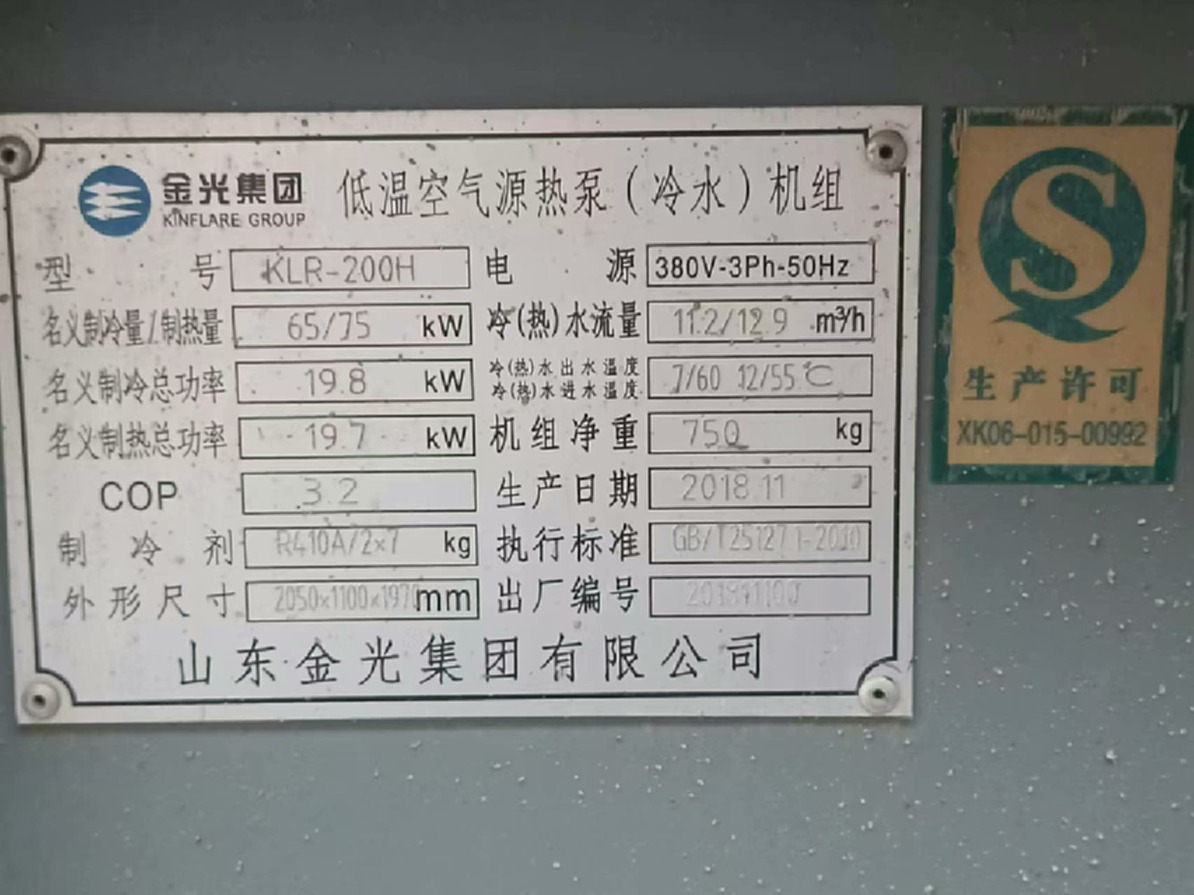 金光集团
KINFLARE GROUP
低温空气源热泵(冷水)机组
型号 KLR-200H 电源 380V-3Ph-50Hz
名义制冷量/制热量 65/75 kW 冷(热)水流量 11.2/12.9 m³/h
名义制冷总功率 19.8 kW 冷(热)水出水温度 冷(热)水进水温度 7/60 12/55℃
名义制热总功率 19.7 kW 机组净重 750 kg
COP 3.2 生产日期 2018.11
制冷剂 R410A/2×7 kg 执行标准 GB/T25127.1-2010
外形尺寸 2050×1100×1970mm 出厂编号
山东金光集团有限公司
S
生产许可
XK06-015-00992